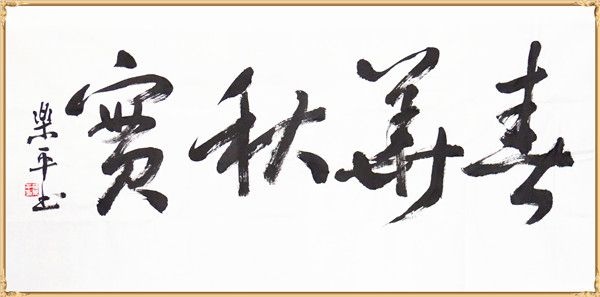 春華秋實
樂平书